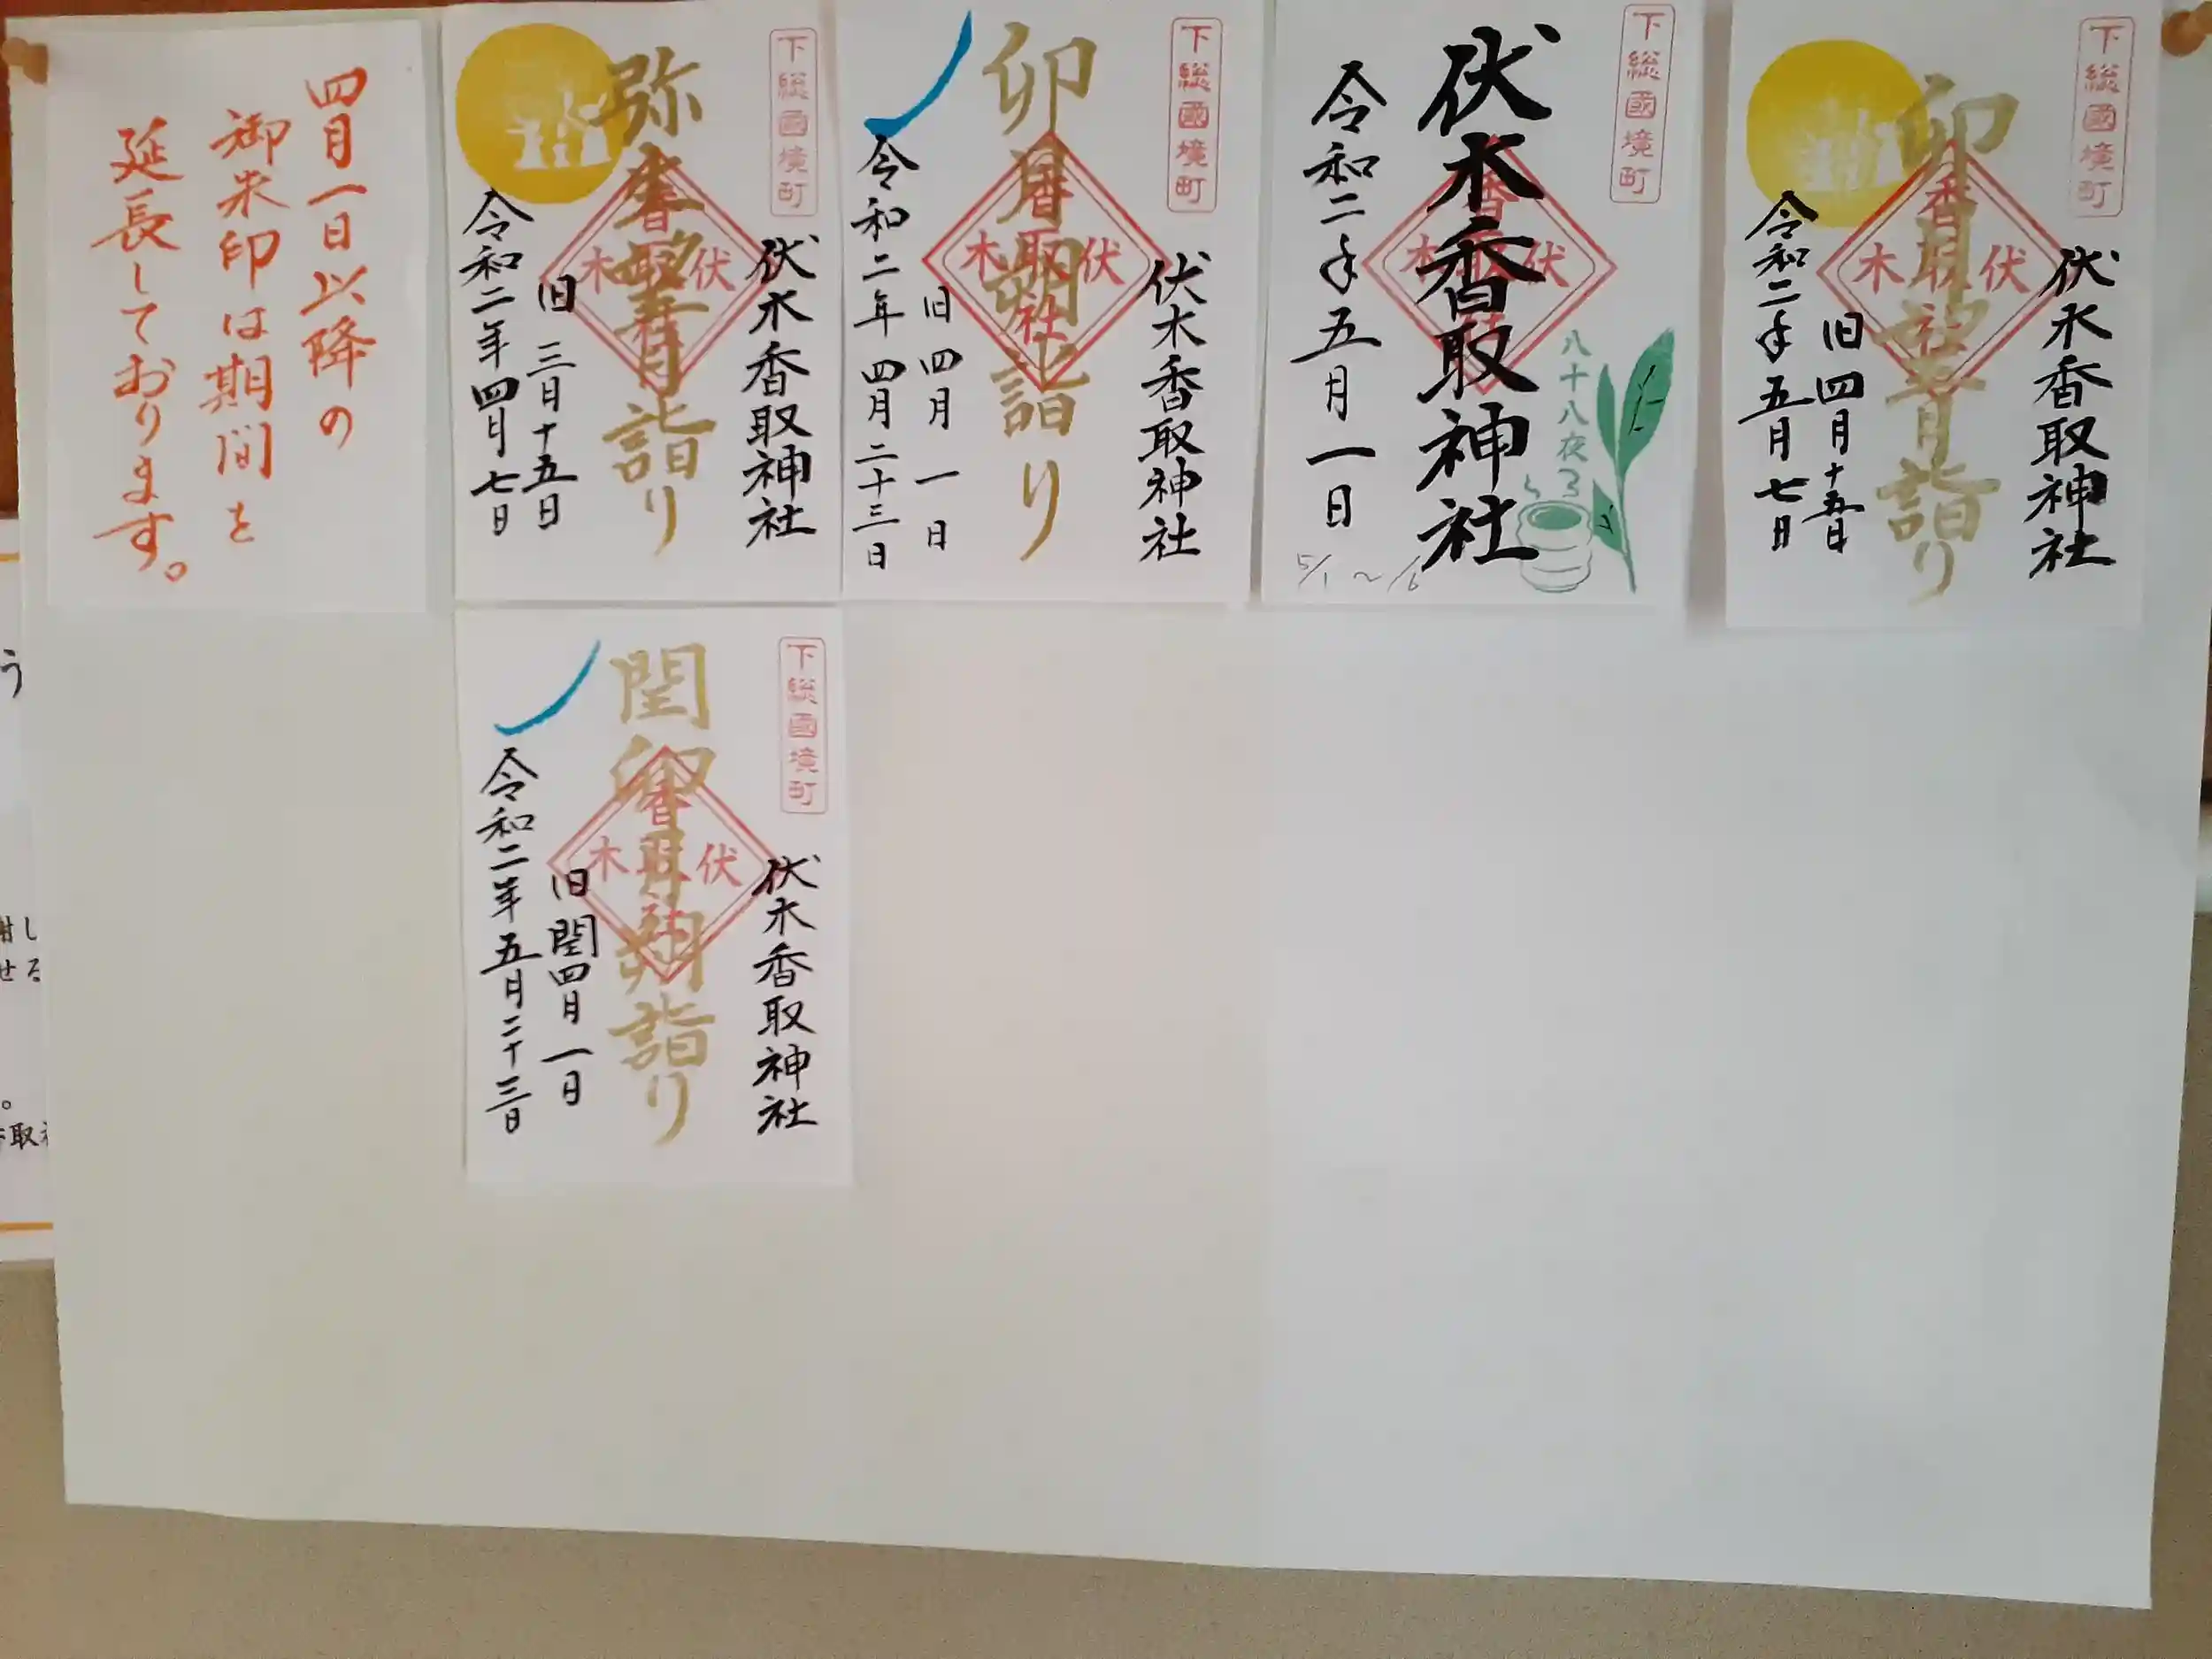 四月一日以降の
御朱印は期間を
延長しております。
下総國境町
伏木香取神社
弥生望月詣り
香取社
伏木
旧三月十五日
令和二年四月七日
下総國境町
伏木香取神社
卯月朔詣り
香取社
伏木
旧四月一日
令和二年四月二十三日
下総國境町
八十八夜
伏木香取神社
香取社
伏木
令和二年五月一日
5/1~/6
下総國境町
伏木香取神社
卯月望月詣り
香取社
伏木
旧四月十五日
令和二年五月七日
下総國境町
伏木香取神社
閏卯月朔詣り
香取社
伏木
旧閏四月一日
令和二年五月二十三日